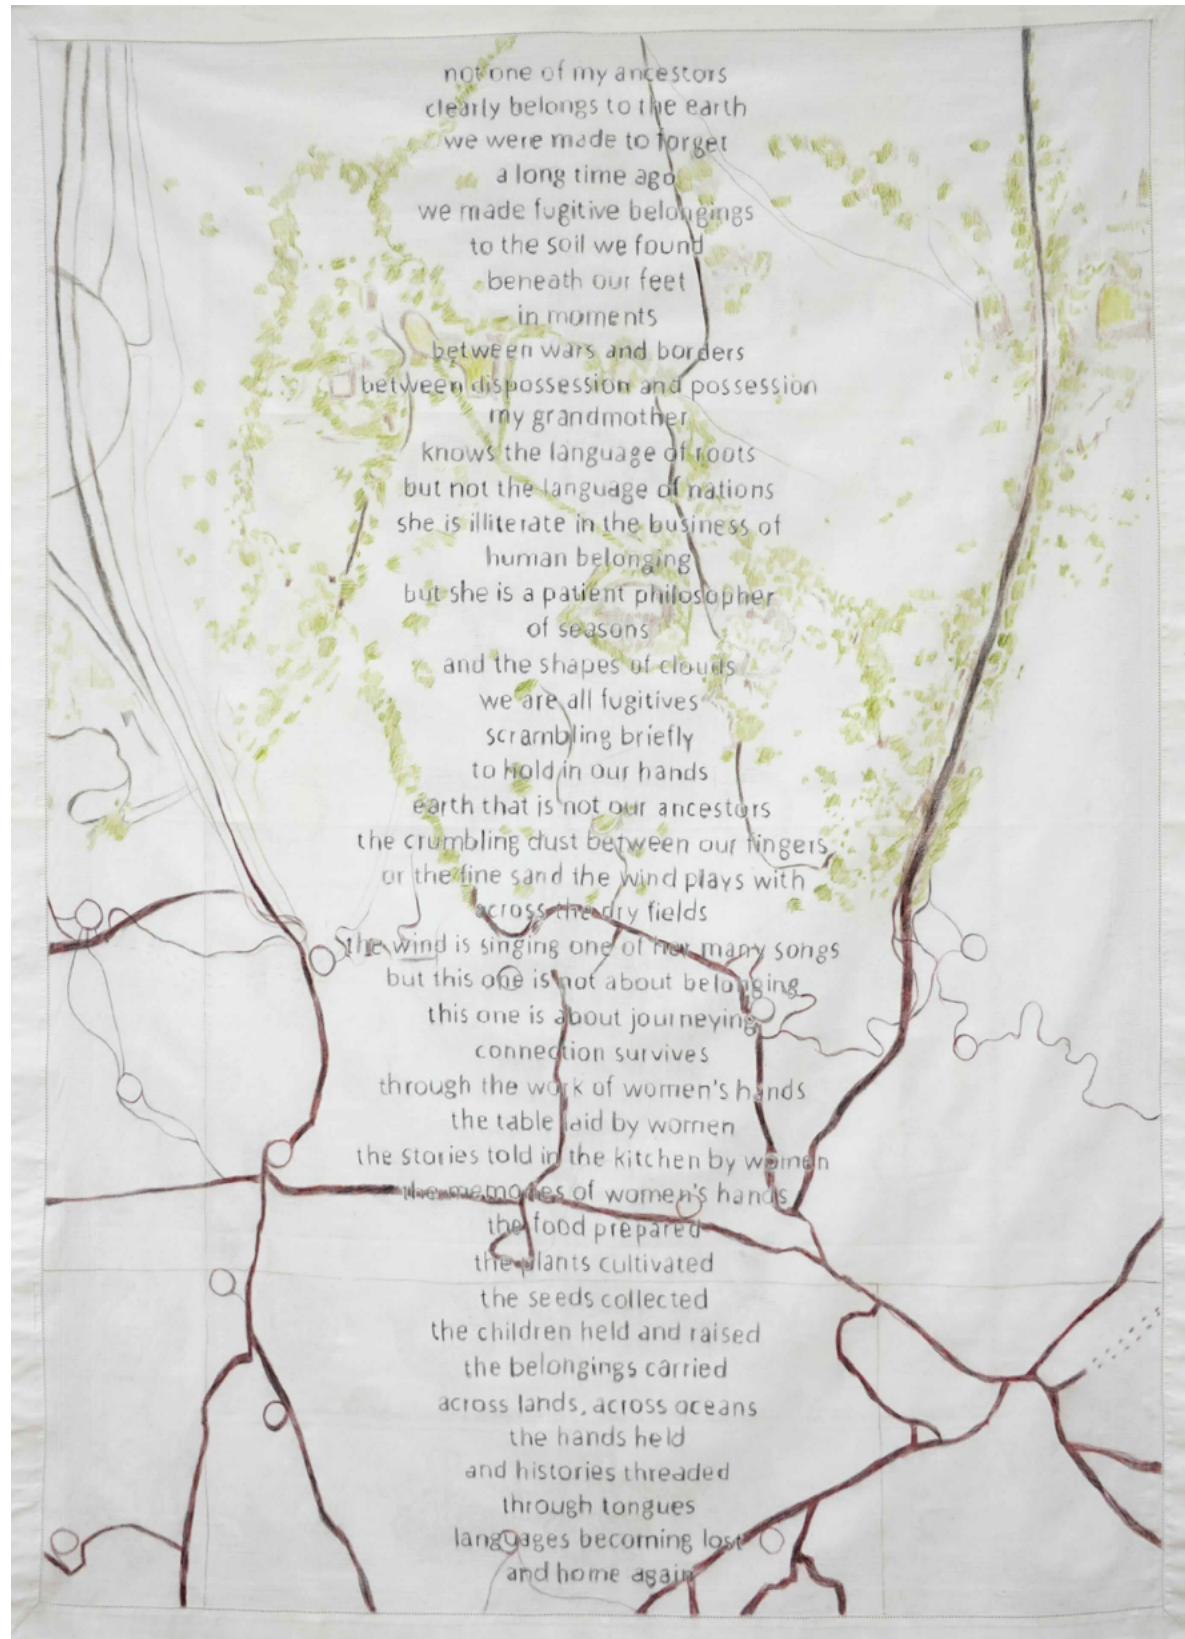 not one of my ancestors
clearly belongs to the earth
we were made to forget
a long time ago
we made fugitive belongings
to the soil we found
beneath our feet
in moments
between wars and borders
between dispossession and possession
my grandmother
knows the language of roots
but not the language of nations
she is illiterate in the business of
human belonging
but she is a patient philosopher
of seasons
and the shapes of clouds
we are all fugitives
scrambling briefly
to hold in our hands
earth that is not our ancestors
the crumbling dust between our fingers
or the fine sand the wind plays with
across the dry fields
the wind is singing one of her many songs
but this one is not about belonging
this one is about journeying
connection survives
through the work of women's hands
the table laid by women
the stories told in the kitchen by women
the memories of women's hands
the food prepared
the plants cultivated
the seeds collected
the children held and raised
the belongings carried
across lands, across oceans
the hands held
and histories threaded
through tongues
languages becoming lost
and home again